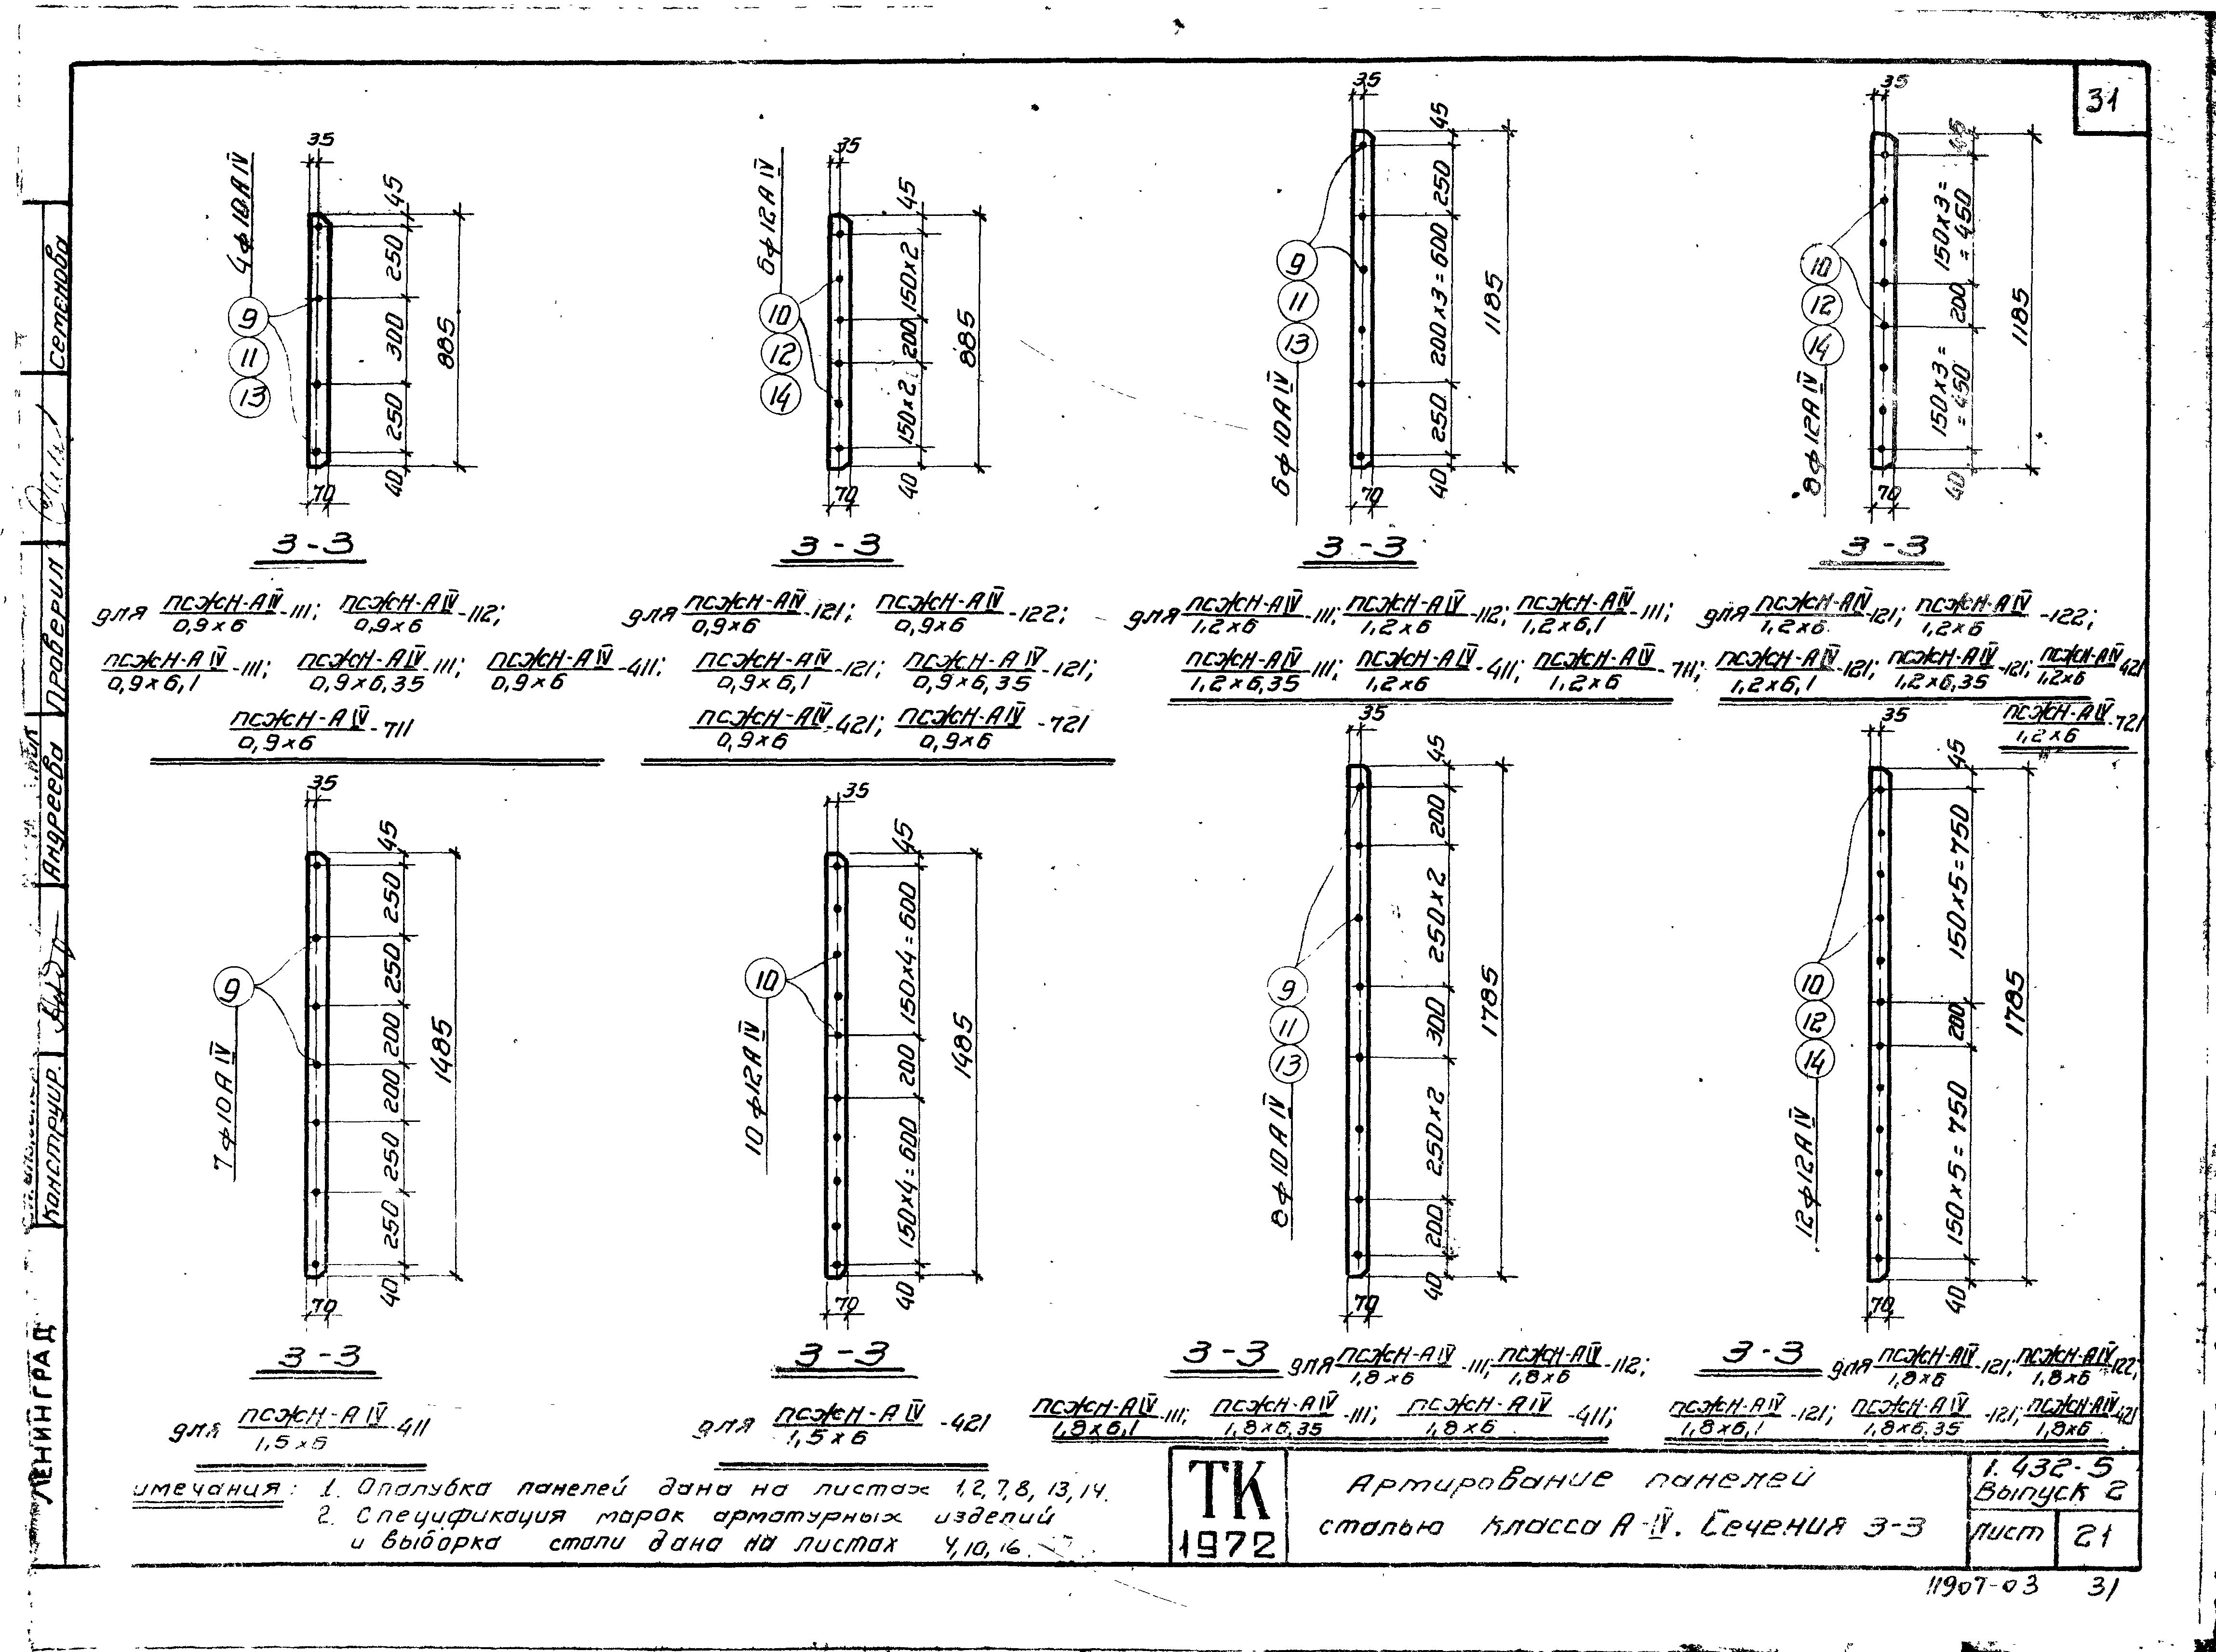 31
35
4ф10АIV
9
11
13
45
250
300
250
40
885
70
3-3
для ПСЖН-АIV/0,9×6-111; ПСЖН-АIV/0,9×6-112;
ПСЖН-АIV/0,9×6,1-111; ПСЖН-АIV/0,9×6,35-111; ПСЖН-АIV/0,9×6-411;
ПСЖН-АIV/0,9×6-711
35
6ф12АIV
10
12
14
45
150×2
200
150×2
40
885
70
3-3
для ПСЖН-АIV/0,9×6-121; ПСЖН-АIV/0,9×6-122;
ПСЖН-АIV/0,9×6,1-121; ПСЖН-АIV/0,9×6,35-121;
ПСЖН-АIV/0,9×6-421; ПСЖН-АIV/0,9×6-721
35
9
11
13
6ф10АIV
45
250
200×3=600
250
40
1185
70
3-3
для ПСЖН-АIV/1,2×6-111; ПСЖН-АIV/1,2×6-112; ПСЖН-АIV/1,2×6,1-111;
ПСЖН-АIV/1,2×6,35-111; ПСЖН-АIV/1,2×6-411; ПСЖН-АIV/1,2×6-711;
35
10
12
14
8ф12АIV
45
150×3=
=450
200
150×3=
=450
40
1185
70
3-3
для ПСЖН-АIV/1,2×6-121; ПСЖН-АIV/1,2×6-122;
ПСЖН-АIV/1,2×6,1-121; ПСЖН-АIV/1,2×6,35-121; ПСЖН-АIV/1,2×6-421
ПСЖН-АIV/1,2×6-721
35
9
7ф10АIV
45
250
250
200
200
250
250
40
1485
70
3-3
для ПСЖН-АIV/1,5×6-411
35
10
10ф12АIV
45
150×4=600
200
150×4=600
40
1485
70
3-3
для ПСЖН-АIV/1,5×6-421
35
9
11
13
8ф10АIV
45
200
250×2
300
250×2
200
40
1785
70
3-3 для ПСЖН-АIV/1,8×6-111; ПСЖН-АIV/1,8×6-112;
ПСЖН-АIV/1,8×6,1-111; ПСЖН-АIV/1,8×6,35-111; ПСЖН-АIV/1,8×6-411;
35
10
12
14
12ф12АIV
45
150×5=750
200
150×5=750
40
1785
70
3-3 для ПСЖН-АIV/1,8×6-121; ПСЖН-АIV/1,8×6-122;
ПСЖН-АIV/1,8×6,1-121; ПСЖН-АIV/1,8×6,35-121; ПСЖН-АIV/1,8×6-421
имечания: 1. Опалубка панелей дана на листах 1,2,7,8,13,14.
2. Спецификация марок арматурных изделий
и выборка стали дана на листах 4,10,16.
ТК
1972
Армирование панелей
сталью класса А-IV. Сечения 3-3
1.432-5
Выпуск 2
Лист
21
11907-03
31
Семенова
Проверил
Андреева
Конструир.
ЛЕНИНГРАД